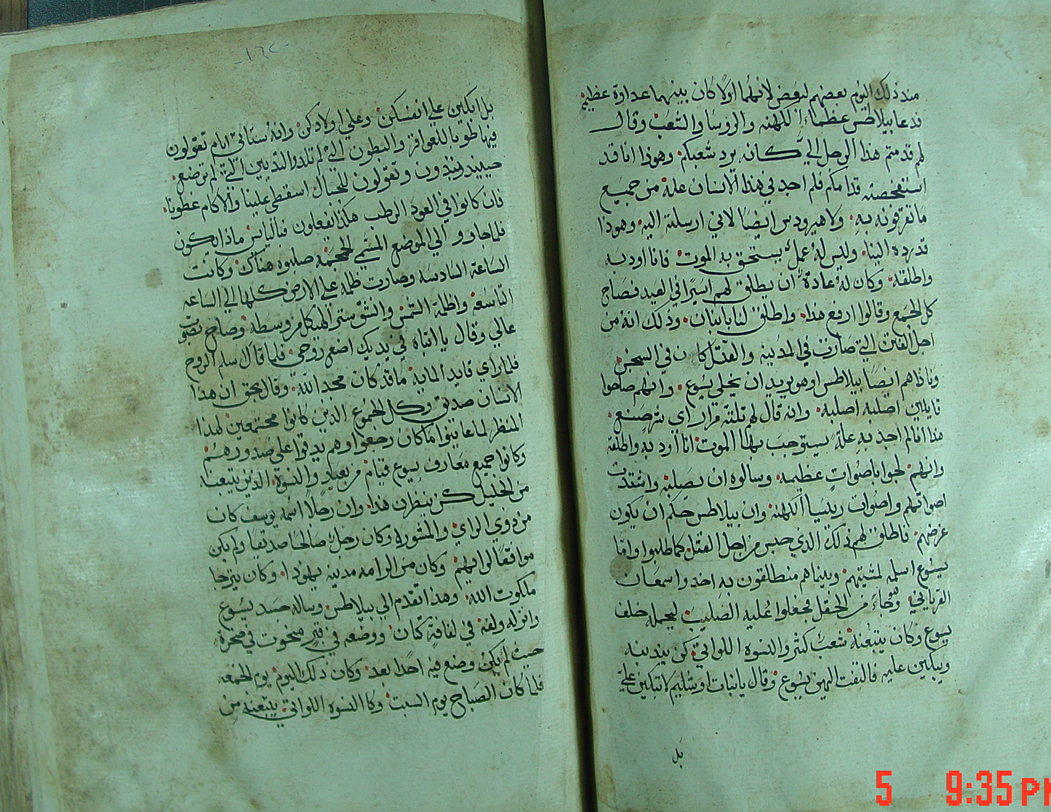 منذ ذلك اليوم بعضهم لبعض لانهما اولا كان بينهما عداوة عظيمه
فدعا بيلاطس عظماء الكهنه والروسا والشعب وقال
لم قدمتم هذا الرجل الي كانه يرد شعبكم وهوذا انا قد
استفحصته قدامكم فلم اجد في هذا الانسان علة من جميع
ما تقرفونه به ولا هيرودس ايضا لاني ارسلته اليه وهوذا
قد رده الينا وليس له عمل يستحق به الموت فانا اودبه
واطلقه وكان له عادة ان يطلق لهم اسيرا في العيد فصاح
كل الجمع وقالوا ارفع هذا واطلق لنا باربان وذلك انه من
اجل الفتن التي صارت في المدينه والقتل كان في السجن
وناداهم ايضا بيلاطس وهو يريد ان يخلي يسوع وانهم صاحوا
قايلين اصلبه اصلبه وانه قال لهم ثلثة مرار اي شر صنع
هذا انا لم اجد به علة يستوجب بها الموت انا اردبه واطلقه
وانهم لجوا باصوات عظيمه وسالوه ان يصلبه واشتدت
اصواتهم واصوات ريسا الكهنه وان بيلاطس حكم ان يكون
غرضهم فاطلق لهم ذلك الذي حبس من اجل القتل كما طلبوا واما
يسوع اسلمه لمشيتهم وبيناهم منطلقون به اخدوا سمعان
القرياني وهو جاء من الحقل فجعلوا عليه الصليب ليحمله خلف
يسوع وكان يتبعه شعب كثير والنسوة اللواتي كن يندبنه
ويبكين عليه فالتفت اليهن يسوع وقال يا بنات اورشليم لا تبكين علي
بل
١٦٤
بل ابكين علي انفسكن وعلي اولادكن وانه ستاتي ايام تقولون
فيها طوبا للعواقر والبطون التي لم تلد والثديين التي لم ترضع
حينيد يبتدون وتقولون للجبال اسقطي علينا والاكام غطونا
فان كانوا في العود الرطب هكذا يفعلون فاليابس ماذا يكون
فلما جاووا الي الموضع المسمي الجمجمه صلبوه هناك وكانت
الساعة السادسه وصارت ظلمه علي الارض كلها الي الساعه
التاسعه واظلمة الشمس وانشق ستر الهيكل من وسطه وصاح بصوت
عالي وقال يا ابتاه في يديك اضع روحي فلما قال سلم الروح
فلما راي قايد المايه ما قد كان مجد الله وقال بحق ان هذا
الانسان صديق وكل الجموع الذين كانوا مجتمعين لهذا
المنظر لما عاينوا ما كان رجعوا وهم يدقوا علي صدورهم
وكانوا جميع معارف يسوع قيام من بعيد والنسوة الذين تبعنه
من الجليل كن ينظرن هذا وان رجلا اسمه يوسف كان
من ذوي الراي والمشورة وكان رجل صالحا صديقا ولم يكن
موافقا لرايهم وكان من الرامه مدينة يهودا وكان يترجا
ملكوت الله وهذا تقدم الي بيلاطس وساله جسد يسوع
وانزله ولفه في لفافة كتان ووضعه في قبر منحوت في صخرة
حيث لم يكن وضع فيه احدا بعد وكان ذلك اليوم يوم الجمعه
فلما كان الصباح يوم السبت وكا النسوه اللواتي يتبعنه من
5 9:35 PM